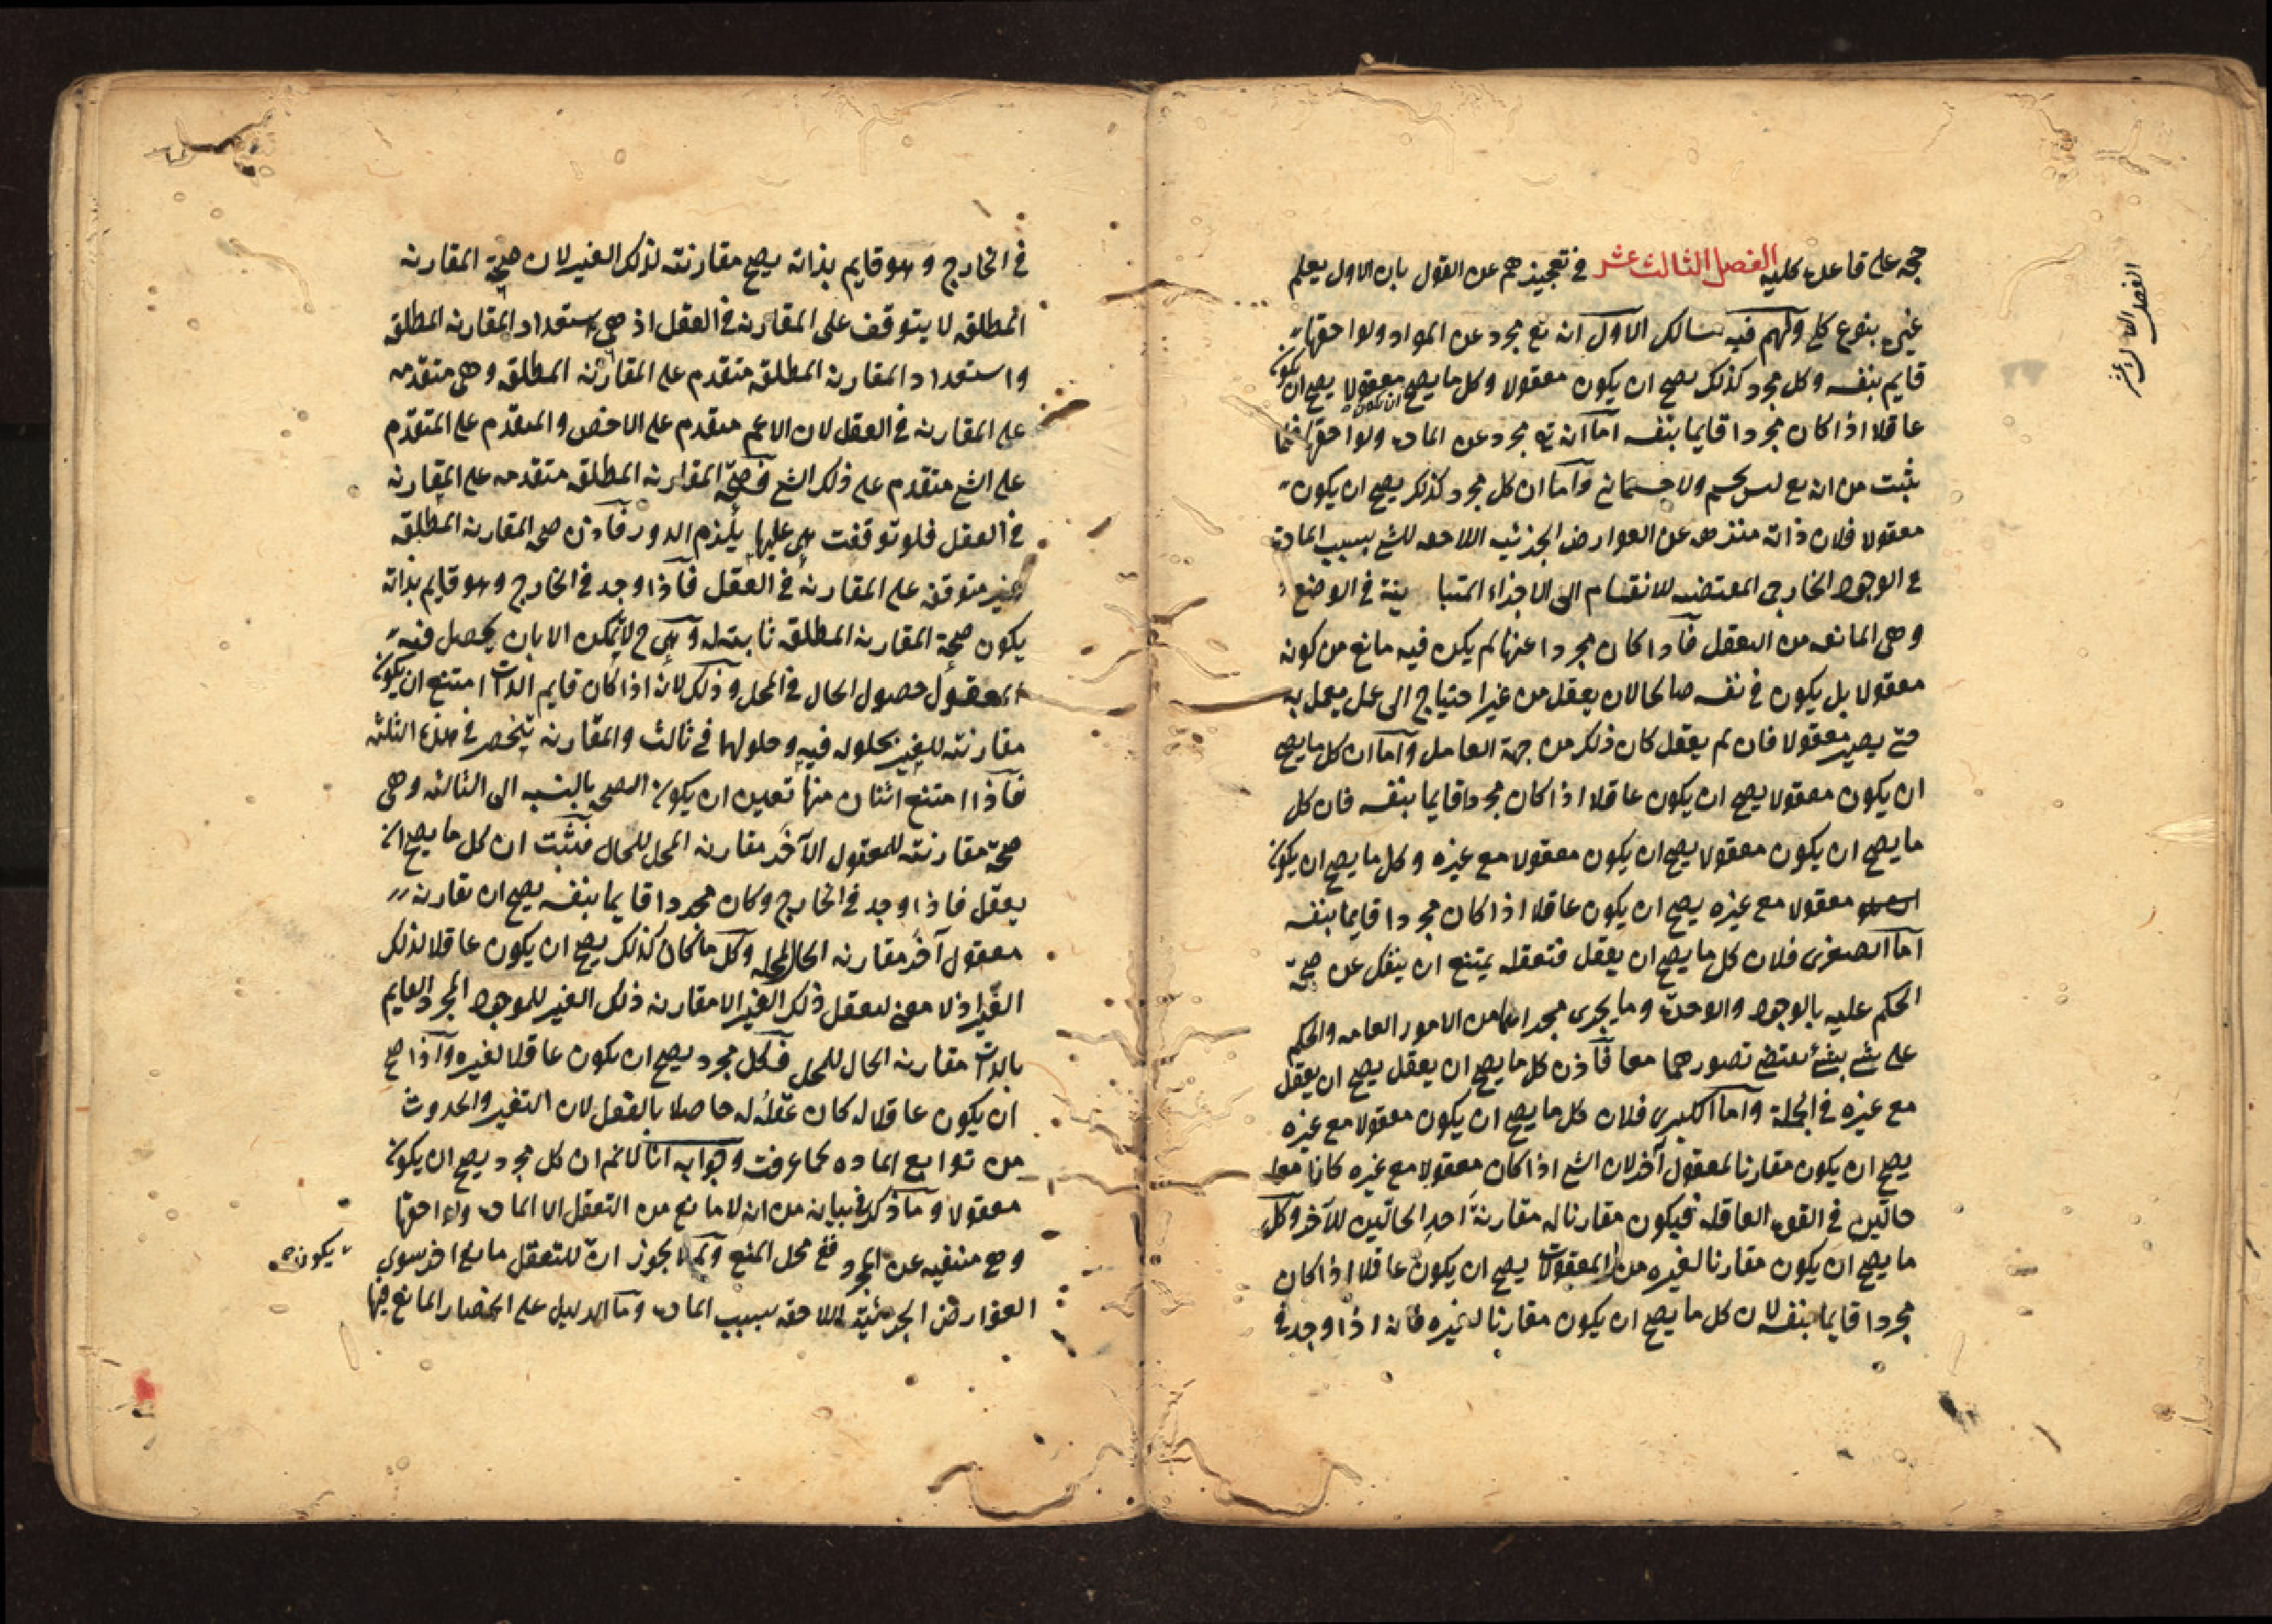 حجه على قاعدة كليه الفصل الثالث عشر في تعجيزهم عن القول بان الاول يعلم
غيره بنوع كلي ولهم فيه مسالك الاول انه تع مجرد عن المواد ولواحقها
قايم بنفسه وكل مجرد كذلك يصح ان يكون معقولا وكل ما يصح ان يكون معقولا يصح ان يكون
عاقلا اذا كان مجردا قايما بنفسه اما انه تع مجرد عن المادة ولواحقها فلما
ثبت من انه تع ليس بجسم ولا جسماني واما ان كل مجرد كذلك يصح ان يكون
معقولا فلان ذاته منزهه عن العوارض الجزئيه اللاحقه للشي بسبب المادة
في الوجود الخارجي المقتضيه للانقسام الى الاجزاء المتباينة في الوضع
وهي المانعه من التعقل فاذا كان مجردا عنها لم يكن فيه مانع من كونه
معقولا بل يكون في نفسه صالحا لان يعقل من غير احتياج الى عمل يعمل به
حتى يصير معقولا فان لم يعقل كان ذلك من جهة العامل واما ان كل ما يصح
ان يكون معقولا يصح ان يكون عاقلا اذا كان مجردا قايما بنفسه فان كل
ما يصح ان يكون معقولا يصح ان يكون معقولا مع غيره وكل ما يصح ان يكون
معقولا مع غيره يصح ان يكون عاقلا اذا كان مجردا قايما بنفسه
اما الصغرى فلان كل ما يصح ان يعقل فتعقله يمتنع ان ينفك عن صحة
الحكم عليه بالوجود والوحدة وما يجري مجراهما من الامور العامه والحكم
على شي بشي يقتضي تصورهما معا فاذن كل ما يصح ان يعقل يصح ان يعقل
مع غيره في الجملة واما الكبرى فلان كل ما يصح ان يكون معقولا مع غيره
يصح ان يكون مقارنا لمعقول آخر لان الشي اذا كان معقولا مع غيره كانا معا
حالين في القوة العاقله فيكون مقارنا له مقارنة احد الحالين للآخر وكل
ما يصح ان يكون مقارنا لغيره من المعقولات يصح ان يكون عاقلا اذا كان
مجردا قايما بنفسه لان كل ما يصح ان يكون مقارنا لغيره فانه اذا وجد في
في الخارج وهو قايم بذاته يصح مقارنته لذلك الغير لان صحة المقارنه
المطلقه لا يتوقف على المقارنه في العقل اذ هي استعداد المقارنه المطلقه
واستعداد المقارنه المطلقه متقدم على المقارنه المطلقه وهي متقدمه
على المقارنه في العقل لان الاعم متقدم على الاخص والمتقدم على المتقدم
على الشي متقدم على ذلك الشي فصحة المقارنه المطلقه متقدمه على المقارنه
في العقل فلو توقفت هي عليها يلزم الدور فاذن صحة المقارنه المطلقه
غير متوقفه على المقارنه في العقل فاذا وجد في الخارج وهو قايم بذاته
يكون صحة المقارنه المطلقه ثابته له وهي ح لا تمكن الا بان يحصل فيه
المعقول حصول الحال في المحل وذلك لانه اذا كان قايم الذات امتنع ان يكون
مقارنته للغير بحلوله فيه وحلولهما في ثالث والمقارنه ينحصر في هذه الثلثه
فاذا امتنع اثنان منها تعين ان يكون الصحه بالنسبه الى الثالثه وهي
صحة مقارنته للمعقول الآخر مقارنه المحل للحال فثبت ان كل ما يصح ان
يعقل فاذا وجد في الخارج وكان مجردا قايما بنفسه يصح ان تقارنه
معقول آخر مقارنه الحال لمحله وكل ما كان كذلك يصح ان يكون عاقلا لذلك
الغير اذ لا معنى لتعقل ذلك الغير الا مقارنه ذلك الغير للموجود المجرد القايم
بالذات مقارنه الحال للمحل فكل مجرد يصح ان يكون عاقلا لغيره واذا صح
ان يكون عاقلا له كان عقله له حاصلا بالفعل لان التغير والحدوث
من توابع الماده كما عرفت وجوابه انا لا نم ان كل مجرد يصح ان يكون
معقولا وما ذكر في بيانه من انه لا مانع من التعقل الا المادة ولواحقها
وهي منتفيه عن المجرد فهو محل المنع ولم لا يجوز ان للتعقل مانع اخر سوى
العوارض الجزئية اللاحقه بسبب المادة وما الدليل على انحصار المانع فيها
يكون
الفصل الثالث عشر